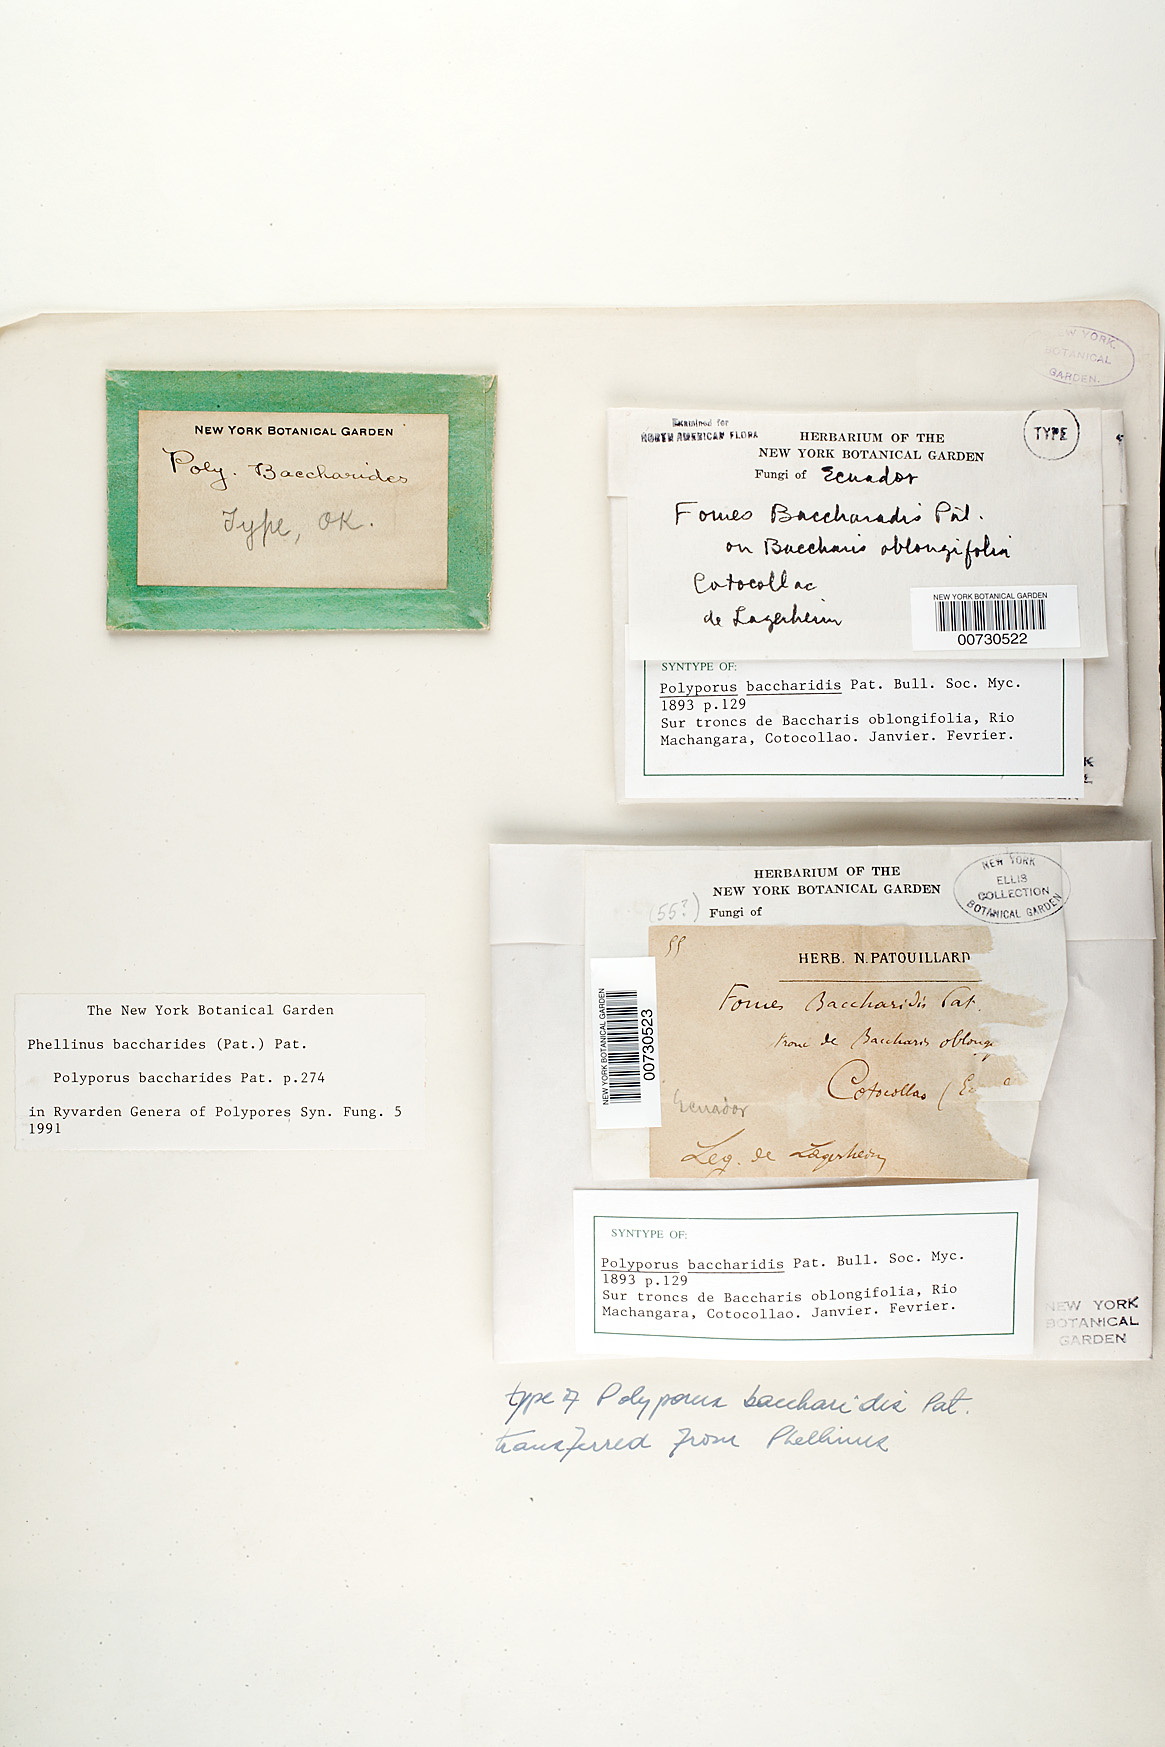 NEW YORK
BOTANICAL
GARDEN.
NEW YORK BOTANICAL GARDEN
Poly. Baccharides
Type, OK.
Examined for
NORTH AMERICAN FLORA
TYPE
HERBARIUM OF THE
NEW YORK BOTANICAL GARDEN
Fungi of Ecuador
Fomes Baccharadis Pat.
on Baccharis oblongifolia
Cotocollac
de Lagerheim
NEW YORK BOTANICAL GARDEN
00730522
SYNTYPE OF:
Polyporus baccharidis Pat. Bull. Soc. Myc.
1893 p.129
Sur troncs de Baccharis oblongifolia, Rio
Machangara, Cotocollao. Janvier. Fevrier.
HERBARIUM OF THE
NEW YORK BOTANICAL GARDEN
(55?) Fungi of
NEW YORK
ELLIS
COLLECTION
BOTANICAL GARDEN
55
HERB. N. PATOUILLARD
Fomes Baccharidis Pat.
tronc de Baccharis oblong
Cotocollao (E
Ecuador
Leg. de Lagerheim
NEW YORK BOTANICAL GARDEN
00730523
SYNTYPE OF:
Polyporus baccharidis Pat. Bull. Soc. Myc.
1893 p.129
Sur troncs de Baccharis oblongifolia, Rio
Machangara, Cotocollao. Janvier. Fevrier.
NEW YORK
BOTANICAL
GARDEN
The New York Botanical Garden
Phellinus baccharides (Pat.) Pat.
Polyporus baccharides Pat. p.274
in Ryvarden Genera of Polypores Syn. Fung. 5
1991
type of Polyporus baccharidis Pat.
transferred from Phellinus